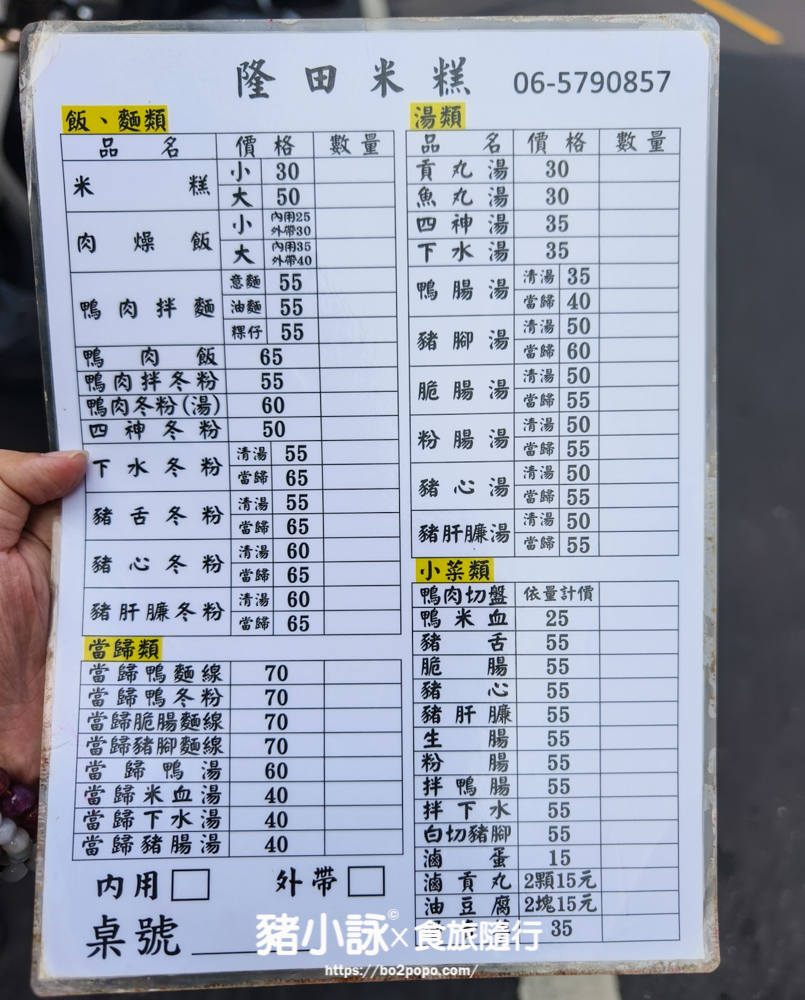 隆田米糕 06-5790857
飯、麵類
品名 價格 數量
米糕 小 30
大 50
肉燥飯 小 內用25 外帶30
大 內用35 外帶40
鴨肉拌麵 意麵 55
油麵 55
粿仔 55
鴨肉飯 65
鴨肉拌冬粉 55
鴨肉冬粉(湯) 60
四神冬粉 50
下水冬粉 清湯 55
當歸 65
豬舌冬粉 清湯 55
當歸 65
豬心冬粉 清湯 60
當歸 65
豬肝臁冬粉 清湯 60
當歸 65
當歸類
當歸鴨麵線 70
當歸鴨冬粉 70
當歸脆腸麵線 70
當歸豬腳麵線 70
當歸鴨湯 60
當歸米血湯 40
當歸下水湯 40
當歸豬腸湯 40
內用 外帶
桌號
湯類
品名 價格 數量
貢丸湯 30
魚丸湯 30
四神湯 35
下水湯 35
鴨腸湯 清湯 35
當歸 40
豬腳湯 清湯 50
當歸 60
脆腸湯 清湯 50
當歸 55
粉腸湯 清湯 50
當歸 55
豬心湯 清湯 50
當歸 55
豬肝臁湯 清湯 50
當歸 55
小菜類
鴨肉切盤 依量計價
鴨米血 25
豬舌 55
脆腸 55
豬心 55
豬肝臁 55
生腸 55
粉腸 55
拌鴨腸 55
拌下水 55
白切豬腳 55
滷蛋 15
滷貢丸 2顆15元
油豆腐 2塊15元
35
豬小詠©×食旅隨行
https://bo2popo.com/